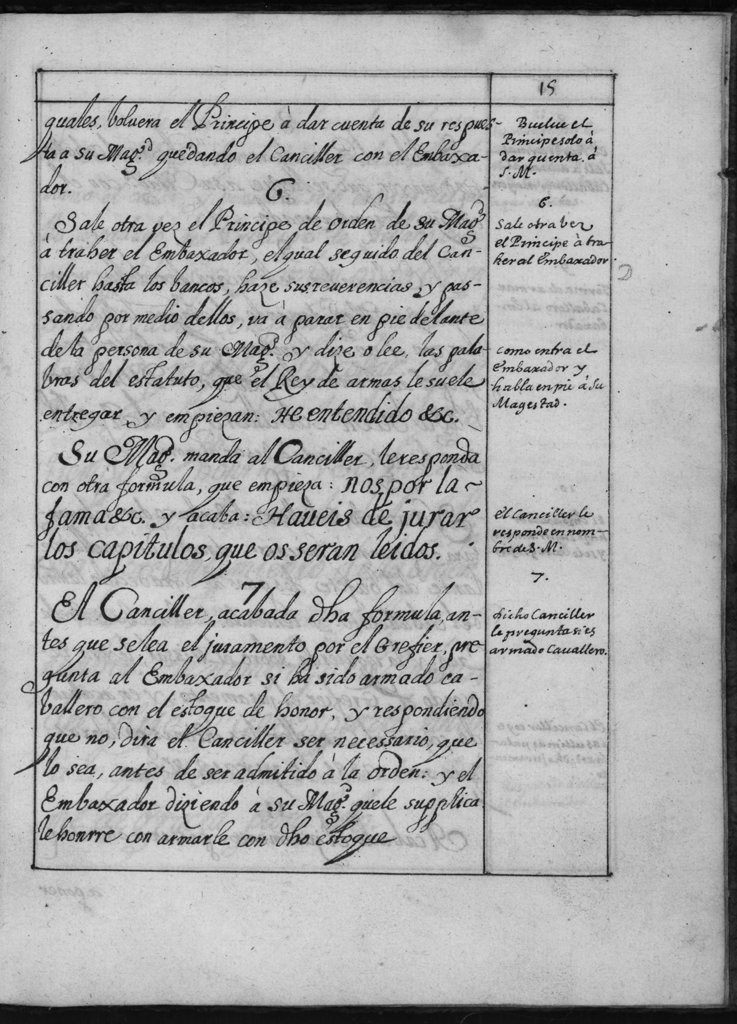 15
quales, bolvera el Principe à dar cuenta de su respues-
ta a su Mag.d quedando el Canciller con el Embaxa-
dor.
6.
Sale otra vez el Principe de orden de su Mag.d
à traher el Embaxador, el qual seguido del Can-
ciller hasta los bancos, haze sus reverencias, y pas-
sando por medio dellos, và à parar en pie delante
de la persona de su Mag.d y dize o lee, las pala
bras del estatuto, que el Rey de armas le suele
entregar, y empiezan: He entendido &c.
Su Mag.d manda al Canciller, le responda
con otra formula, que empieza: nos por la
fama &c. y acaba: Haveis de jurar
los capitulos, que os seran leidos.
7
El Canciller, acabada dha formula, an-
tes que se lea el juramento por el Grefier, pre
gunta al Embaxador si ha sido armado ca-
vallero con el estoque de honor, y respondiendo
que no, dira el Canciller ser necessario, que
lo sea, antes de ser admitido à la orden: y el
Embaxador diziendo à su Mag.d que le supplica
le honrre con armarle con dho estoque
Buelve el
Principe solo à
dar quenta à
S. M.
6.
Sale otra vez
el Principe à tra
her al Embaxador.
como entra el
Embaxador y
habla en pie à su
Magestad.
el Canciller le
responde en nom-
bre de S. M.
7.
dicho Canciller
le pregunta si es
armado Cavallero.